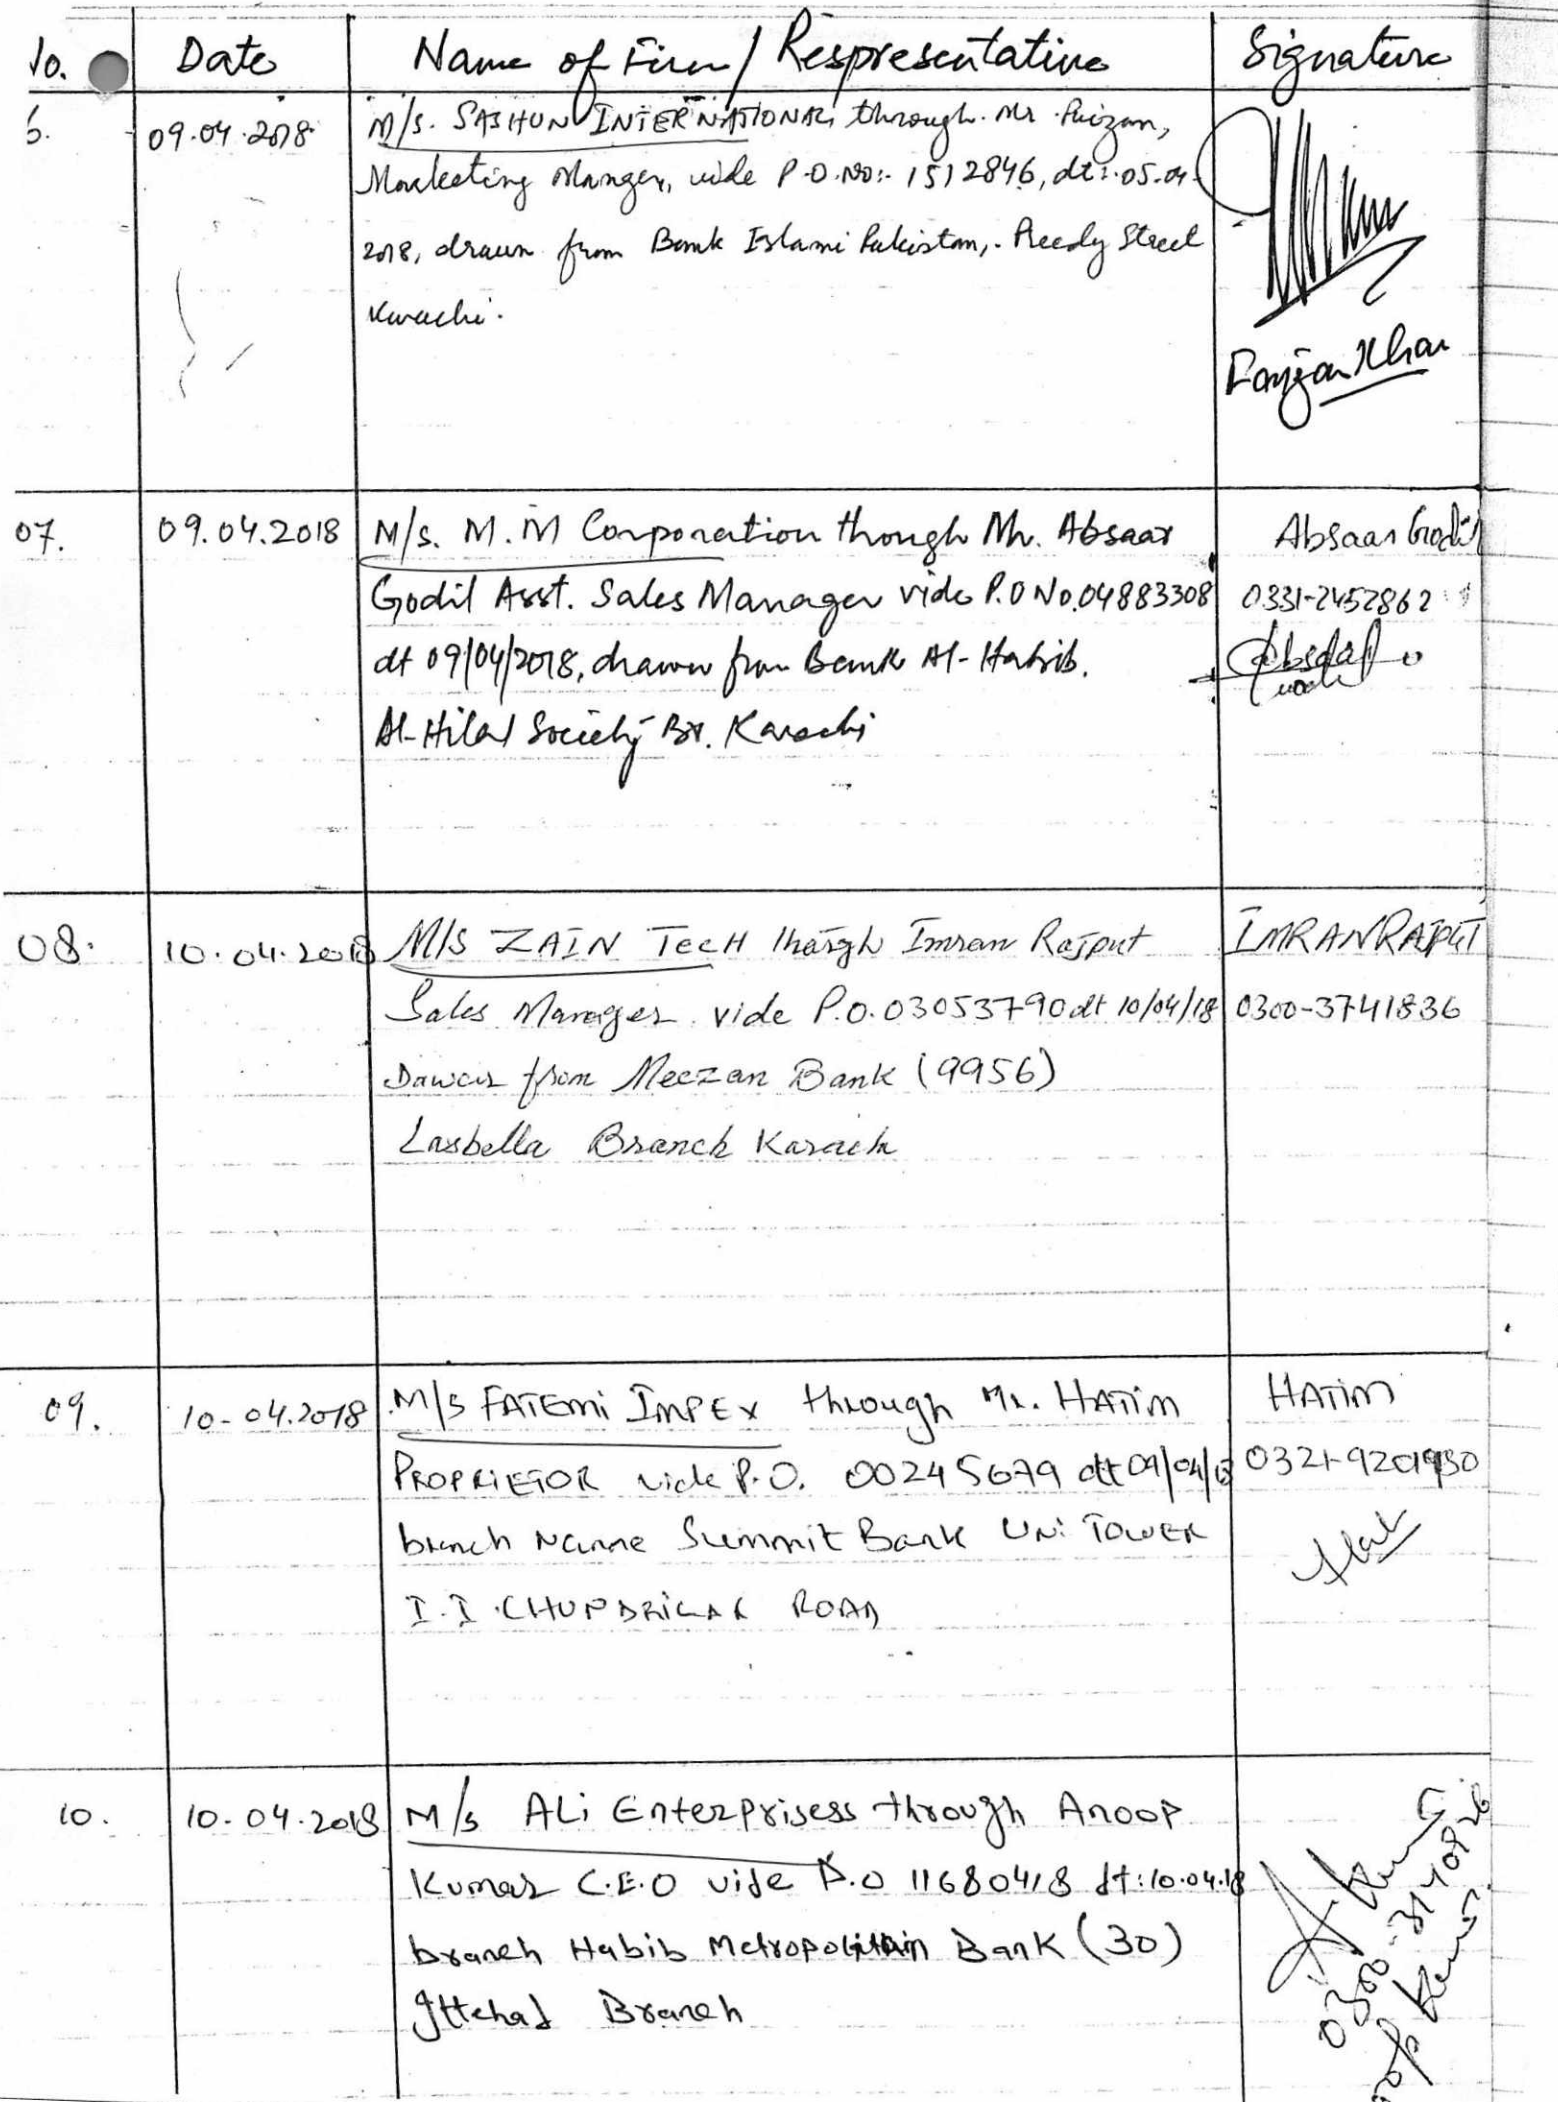 No. Date Name of Firm/Respresentative Signature
6. 09.04.2018 M/s. SASHUN INTERNATIONAL through Mr. Faizan,
Marketing Manger, vide P.O.No:- 1512846, dt:.05.04.
2018, drawn from Bank Islami Pakistan,. Preedy Street
Karachi.
Faizan Khan
07. 09.04.2018 M/s. M.M Corporation though Mr. Absaar Absaar Godil
Godil Asst. Sales Manager vide P.O No.04883308 0331-2452862
dt 09/04/2018, drawn from Bank Al-Habib. Absaar
Al-Hilal Society Br. Karachi Godil
08. 10.04.2018 M/S ZAIN TecH through Imran Rajput IMRAN RAJPUT
Sales Manager vide P.O. 03053790 dt 10/04/18 0300-3741836
Dawan from Meezan Bank (9956)
Lasbella Branch Karachi
09. 10-04.2018 M/S FATEMI IMPEX through Mr. HATIM HATIM
PROPRIETOR vide P.O. 00245679 dt 09/04/18 0321-9201930
branch Name Summit Bank UNI TOWER
I.I.CHUNDRIGAR ROAD
10. 10-04.2018 M/s ALi Enterprisess through Anoop
Kumar C.E.O vide P.O 11680418 dt:10.04.18
branch Habib Metropolitain Bank (30)
Ittehad Branch
A. Kumar
0300-3140826
Kumar